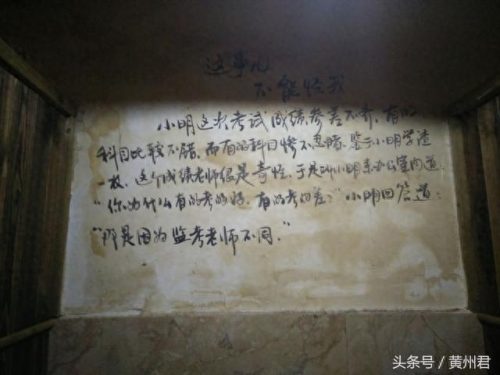 这事儿
不能怪我
小明这次考试成绩参差不齐，有的
科目比较不错，而有的科目惨不忍睹。鉴于小明学渣
一枚，这个成绩老师很是奇怪，于是叫小明来办公室问道：
“你为什么有的考的好，有的考的差？”小明回答道：
“那是因为监考老师不同。”
头条号 / 黄州君